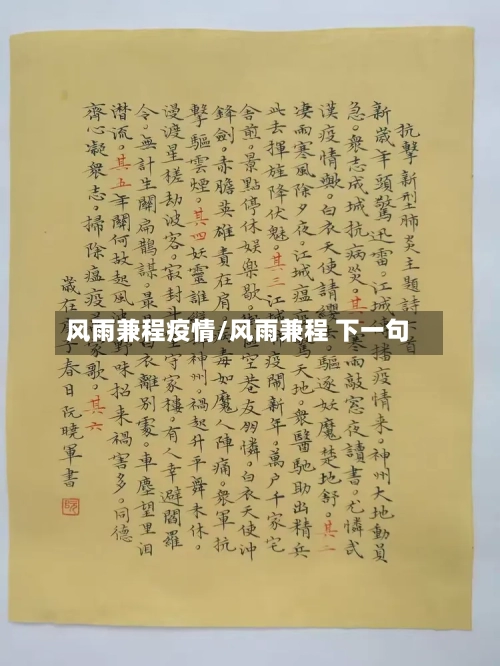 抗擊新型肺炎主題詩六首
新歲年頭驚迅雷。江城
播疫情来。神州大地動員
急。衆志成城抗病災。其
寒雨敲窓夜讀書。尤憐武
漢疫情
白衣天使請纓
驅逐妖魔楚地舒。其二
凄雨寒風除夕夜。江城瘟疫
天地。衆醫馳助出精兵
此去揮旌降伏魅。其三江城
疫鬧新年。萬户千家宅
舍前。景點停休娱樂歇。
空巷友朋憐。白衣天使沖
鋒劍。赤膽英雄責在肩。
毒如魔人陣痛。衆軍抗
擊驅雲煙。其四妖靈誰
神州。禍起升平舞未休。
漫渡星槎劫波客。寂封
守家樓。有人幸避閻羅
令。無計生關扁鵲謀。最是
衣離别處。車塵望里泪
潜流。其五年關何故起風波
野味招来禍害多。同德
齊心凝衆志。掃除瘟疫
家歌。其六
歲在
子春日阮曉軍書
风雨兼程疫情/风雨兼程 下一句